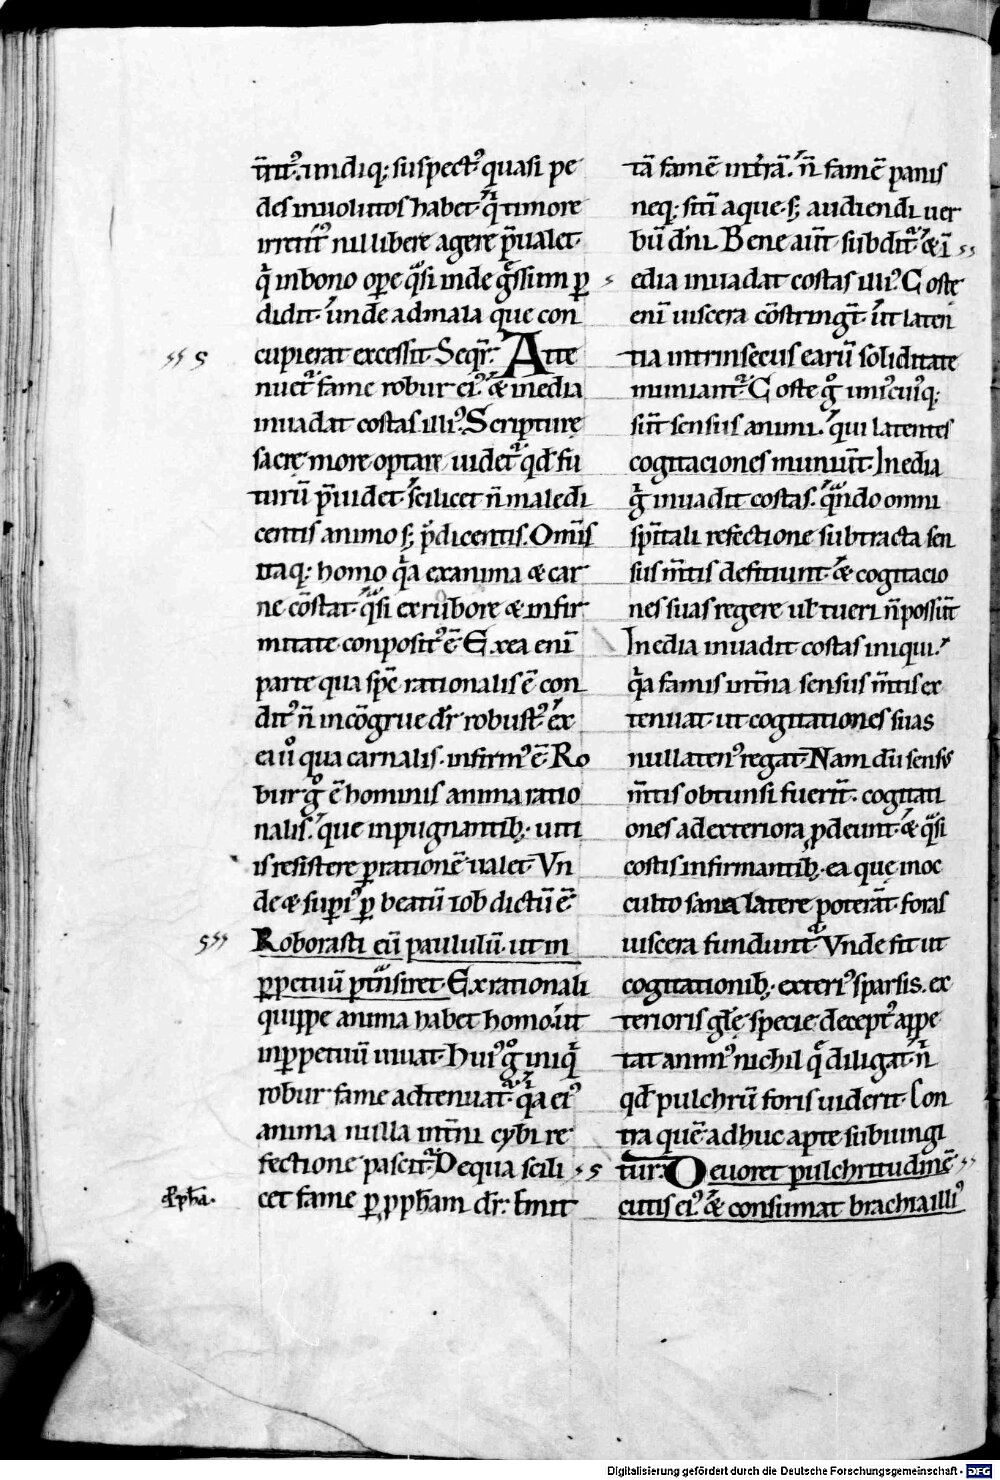 t̄rit᷒. undiq; suspect᷒ quasi pe
des inuolutos habet. q̄ timore
irretit᷒ nil libere agere p̄ualet.
q̄ in bono ope q͛si inde g̃ssum ꝑ
didit. unde ad mala que con
cupierat excessit. Seqr̄. Atte
nuet᷒ fame robur ei᷒. & inedia
inuadat costas illi᷒. Scripturę
sacrę more optare uidet᷒ qd̄ fu
turū p̄uidet. scilicet n̄ maledi
centis animo s; p̄dicentis. Om̄is
itaq; homo q̄a ex anima & car
ne cōstat. q͛si ex rubore & infir
mitate conposit᷒ ē. Ex ea enī
parte qua sp̄e rationalis ē con
dit᷒ n̄ incōgrue dr̄ robust᷒. ex
ea ů qua carnalis. infirm᷒ ē. Ro
bur g̊ ē hominis anima ratio
nalis. que inpugnantib;. uiti
is resistere ꝑ rationē ualet. Vn
de & supi᷒ ꝑ beatū iob dictū ē.
Roborasti eū paululū. ut in
ꝑpetuū pt̄nsiret. Ex rationali
quippe anima habet homo. ut
in ꝑpetuū uiuat. Hui᷒ g̊ iniq̄
robur fame adtenuat᷒. q̄a ei᷒
anima nulla int̄ni cybi re
fectione pascit᷒. De qua scili
cet fame ꝑ ꝓph̄am dr̄: Emit
ꝓph̄a.
tā famē in t̄rā. n̄ famē panis
neq; sitī aque. s; audiendi uer
bū dn̄i. Bene aūt subdit᷒. & ī
edia inuadat costas illi᷒. Coste
enī uiscera cōstringt̄. ut laten
tia intrinsecus earū soliditate
muniant᷒. Coste g̊ uni᷒cui᷒q;
sūt sensus animi. qui latentes
cogitaciones muniūt. Inedia
g̊ inuadit costas. q͛ndo omni
sp̄itali refectione subtracta sen
sus m̄tis defitiunt. & cogitacio
nes suas regere ul̄ tueri n̄ possūt
Inedia inuadit costas iniqui.
q̄a famis int̄na sensus m̄tis ex
tenuat. ut cogitationes suas
nullaten᷒ regat. Nam dū sensus
m̄tis obtunsi fuerīt. cogitati
ones ad exteriora ꝓdeunt. & q͛si
costis infirmantib;. ea que in oc
culto sana latere poterāt. foras
uiscera fundunt᷒. Vnde fit ut
cogitationib;. exteri᷒ sparsis. ex
terioris gl̄ę specie decept᷒ appe
tat anim᷒ nichil q̄ diligat. n̄
qd̄ pulchrū foris uiderit. Con
tra quē adhuc apte subiungi
tur. Deuoret pulchritudinē
cutis ei᷒. & consumat brachia illi᷒
Digitalisierung gefördert durch die Deutsche Forschungsgemeinschaft - DFG